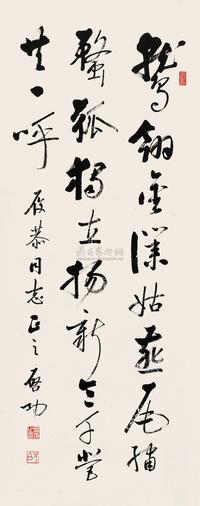 鹫翎金仆姑燕尾绣
蝥弧独立扬新令千营
共一呼
履恭同志正之启功